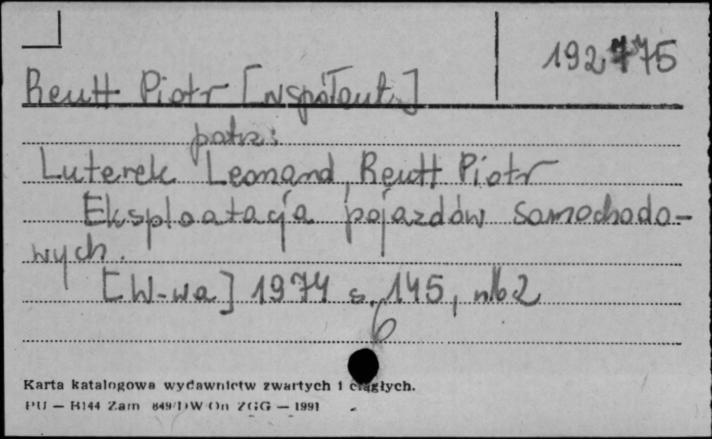 192775
Reutt Piotr [współaut.]
patrz:
Luterek Leonard, Reutt Piotr
Eksploatacja pojazdów samochodo-
wych.
[W-wa] 1974 s. 145, nlb 2
6
Karta katalogowa wydawnictw zwartych i ciągłych.
PU — H144 Zam 849/DW/On ZGG — 1991